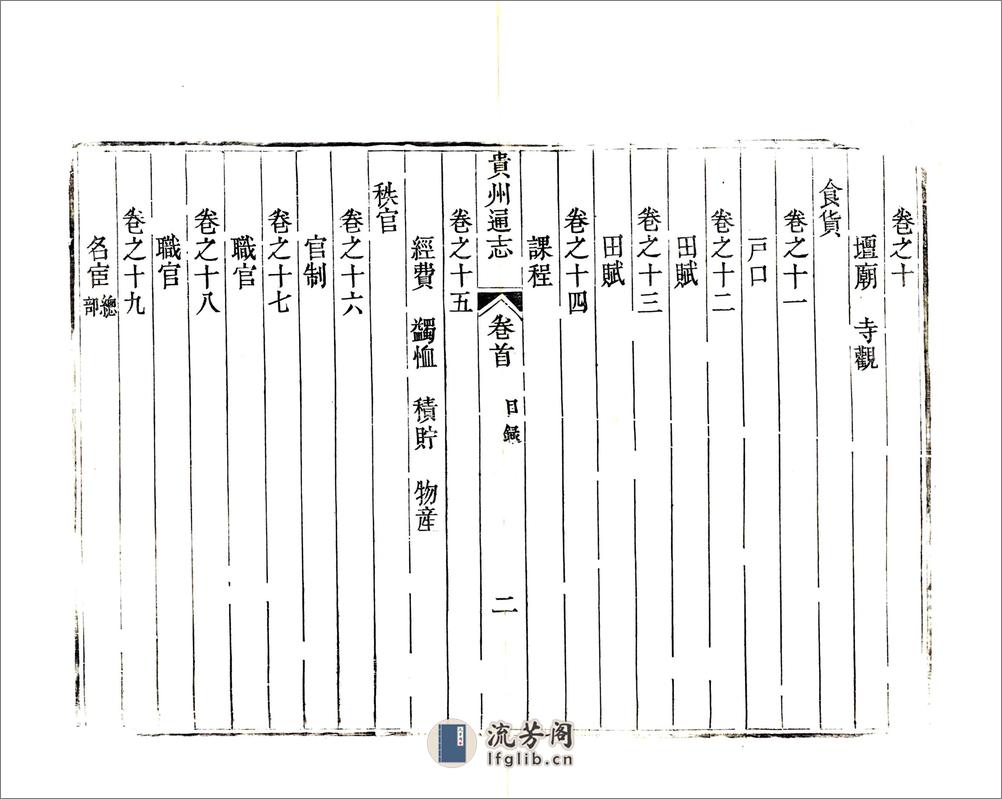 卷之十
壇廟　寺觀
食貨
卷之十一
戸口
卷之十二
田賦
卷之十三
田賦
卷之十四
課程
貴州通志　卷首　目錄　二
卷之十五
經費　蠲恤　積貯　物產
秩官
卷之十六
官制
卷之十七
職官
卷之十八
職官
卷之十九
名宦總部
流芳阁
lfglib.cn